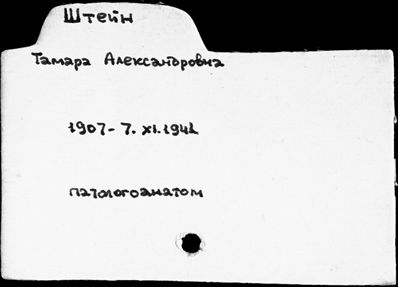 Штейн
Тамара Александровна
1907- 7. XI. 1941
патологоанатом